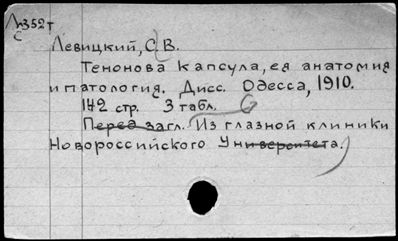 Л352т
С
Левицкий, С. В.
Тенонова капсула, ея анатомия
и патология. Дисс. Одесса, 1910.
142 стр. 3 табл.
Перед загл. Из глазной клиники
Новороссийского Университета.